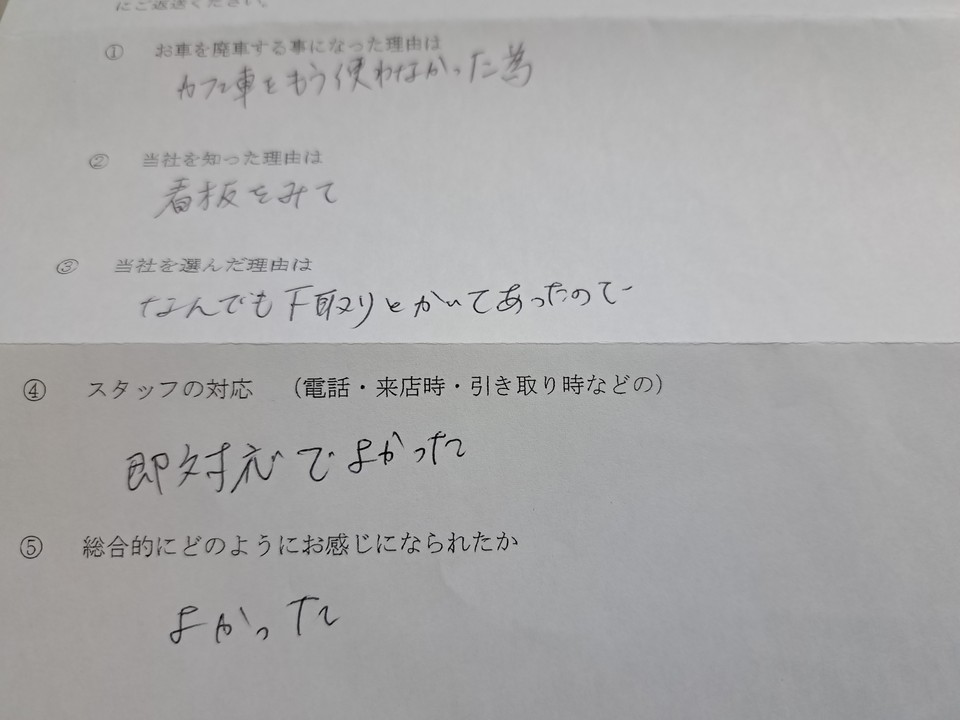 にご返送ください。
① お車を廃車する事になった理由は
カフェ車をもう使わなかった為
② 当社を知った理由は
看板をみて
③ 当社を選んだ理由は
なんでも下取りとかいてあったので
④ スタッフの対応 （電話・来店時・引き取り時などの）
即対応でよかった
⑤ 総合的にどのようにお感じになられたか
よかった